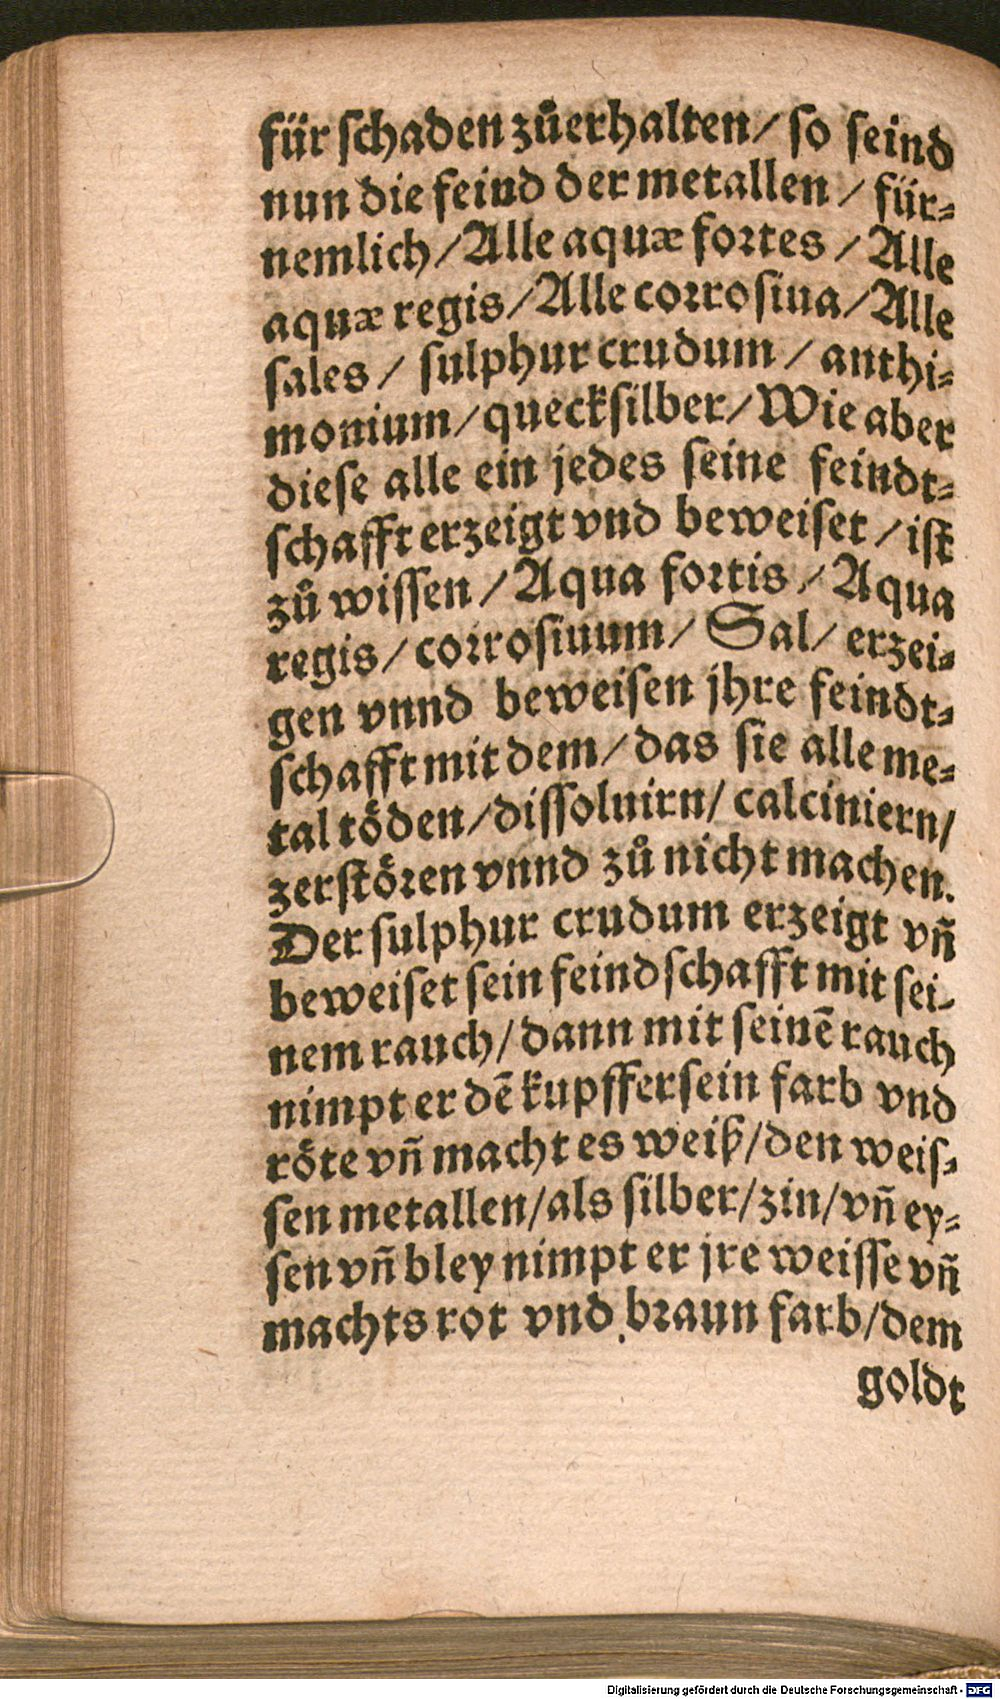 für schaden zůerhalten/ so seind
nun die feind der metallen / für⸗
nemlich/Alle aquæ fortes / Alle
aquæ regis/Alle corrosiua/Alle
sales / sulphur crudum / anthi⸗
monium/quecksilber/Wie aber
diese alle ein jedes seine feindt⸗
schafft erzeigt vnd beweiset / ist
zů wissen / Aqua fortis / Aqua
regis/ corrosiuum/ Sal/ erzei⸗
gen vnnd beweisen jhre feindt⸗
schafft mit dem/ das sie alle me⸗
tal töden/dissoluirn/ calciniern/
zerstören vnnd zů nicht machen.
Der sulphur crudum erzeigt vñ
beweiset sein feindschafft mit sei⸗
nem rauch/ dann mit seinē rauch
nimpt er dē kupffer sein farb vnd
röte vñ macht es weiß/den weis⸗
sen metallen/als silber/zin/vñ ey⸗
sen vñ bley nimpt er jre weisse vñ
machts rot vnd braun farb/dem
goldt
Digitalisierung gefördert durch die Deutsche Forschungsgemeinschaft - DFG